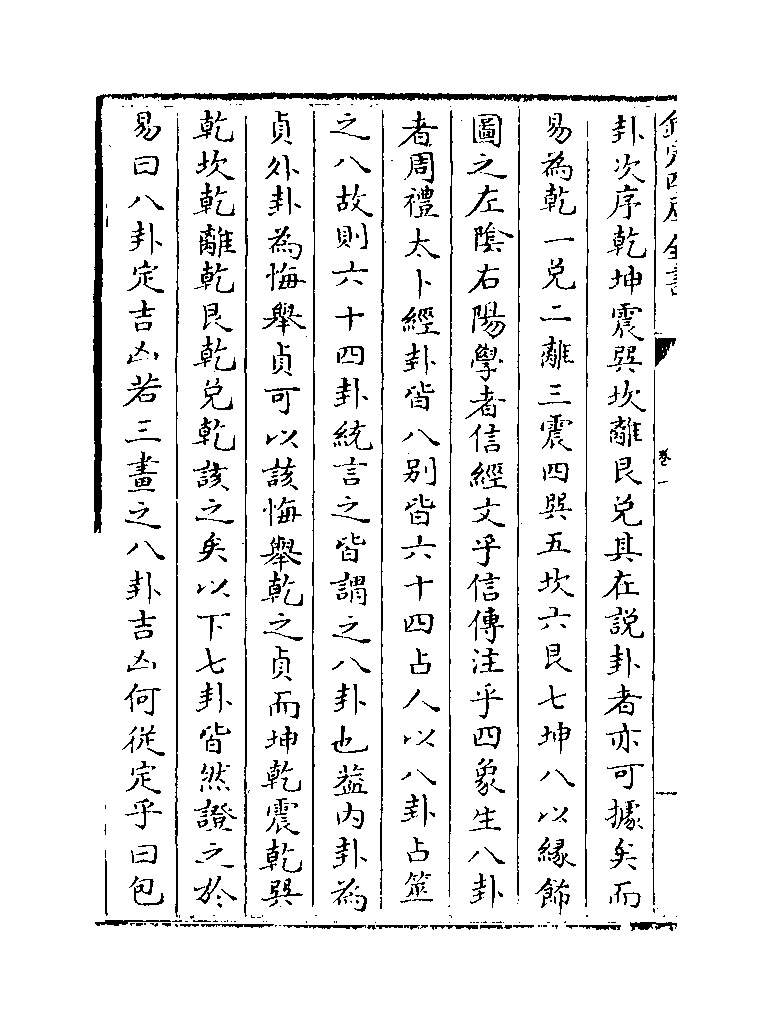 欽定四庫全書
卷一
卦次序乾坤震巽坎離艮兑具在説卦者亦可據矣而
易為乾一兑二離三震四巽五坎六艮七坤八以緣飾
圖之左陰右陽學者信經文乎信傳注乎四象生八卦
者周禮太卜經卦皆八别皆六十四占人以八卦占筮
之八故則六十四卦統言之皆謂之八卦也葢内卦為
貞外卦為悔舉貞可以該悔舉乾之貞而坤乾震乾巽
乾坎乾離乾艮乾兑乾該之矣以下七卦皆然證之於
易曰八卦定吉凶若三畫之八卦吉凶何從定乎曰包